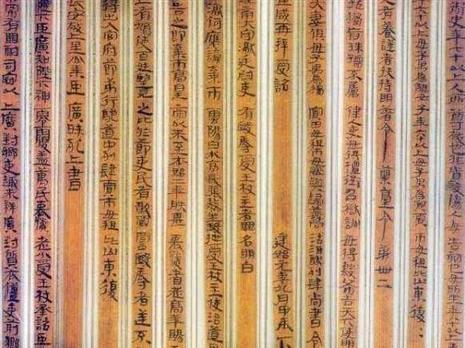 年六十以上毋子男為鰥女子年六十以上毋子男為寡賈市毋租比山東復
復人有養謹者扶持明著令 蘭臺令第卌二
孤獨盲珠孺不屬律人吏毋得擅徵召獄訟毋得毆布告天下使明
夫妻俱毋子男為獨寡田毋租市毋賦與歸義同沽酒醪列肆尚書令
臣咸再拜受詔 建始元年九月甲辰下
汝南太守讞廷尉吏有毆辱受王杖主者罪名明白
制曰讞何應論棄市雲陽白水亭長張熬坐毆抴受王杖主使治道
告之即棄市高皇帝以來至本始二年朕甚哀憐耆老高年賜
上有鳩使百姓望見之比於節吏民有敢罵詈毆辱者逆不
得出入官府節第行馳道中列肆賈市毋租比山東復
長安敬上里公乘臣廣昧死上書
臣廣知陛下神零覆蓋萬民哀憐老小受王杖承詔臣
司寇以上廣對鄉吏趣未辨廣對質衣僵吏前鄉